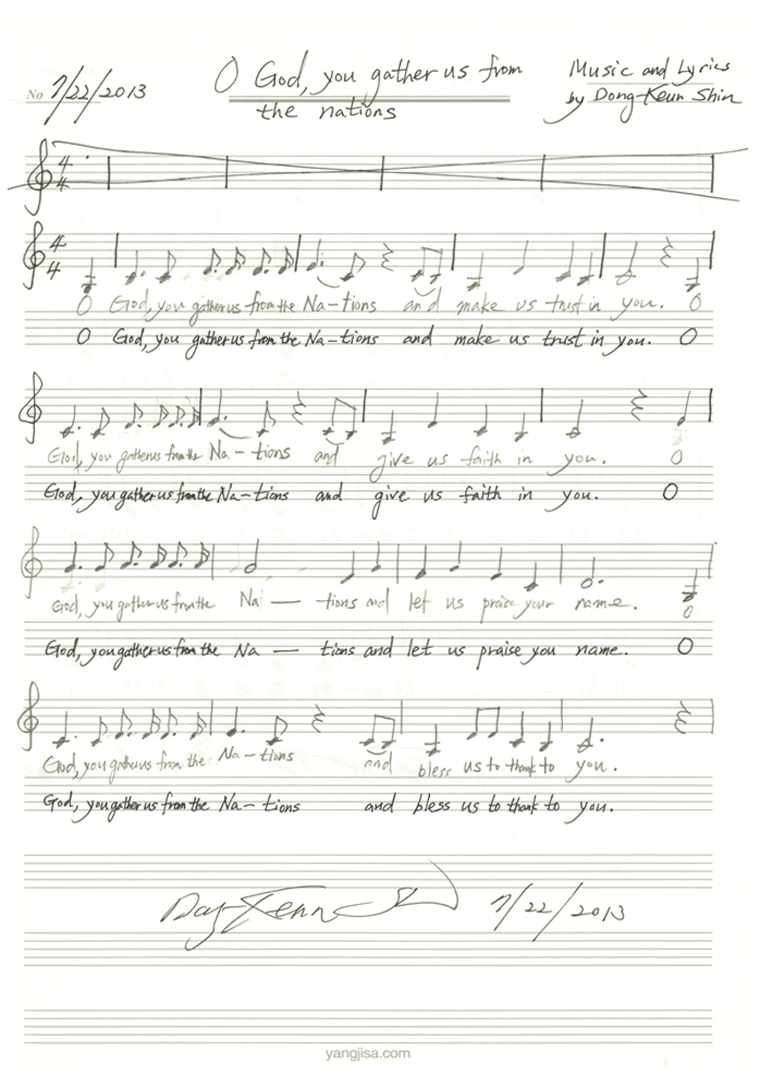 No 7/22/2013
O God, you gather us from
the nations
Music and Lyrics
by Dong-Keun Shin
4
4
4
4
O God, you gather us from the Na-tions and make us trust in you. O
O God, you gather us from the Na-tions and make us trust in you. O
God, you gather us from the Na-tions and give us faith in you. O
God, you gather us from the Na-tions and give us faith in you. O
God, you gather us from the Na — tions and let us praise your name. O
God, you gather us from the Na — tions and let us praise you name. O
God, you gather us from the Na-tions and bless us to thank to you.
God, you gather us from the Na-tions and bless us to thank to you.
Dong-Keun Shin 7/22/2013
yangjisa.com